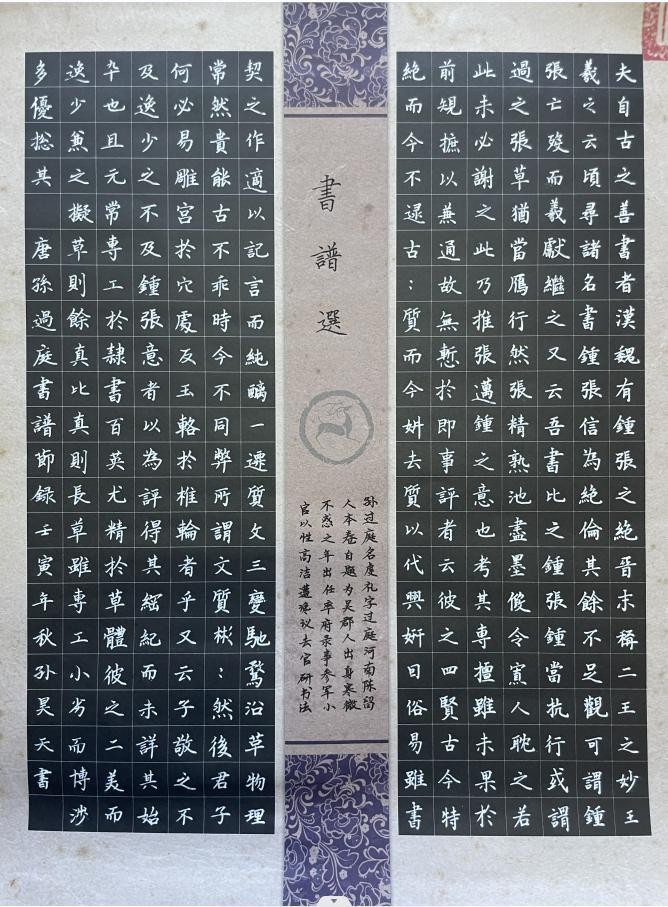 夫自古之善書者漢魏有鍾張之絶晉末稱二王之妙王
羲之云頃尋諸名書鍾張信為絶倫其餘不足觀可謂鍾
張亡歿而羲獻繼之又云吾書比之鍾張鍾當抗行或謂
過之張草猶當鴈行然張精熟池盡墨假令寡人耽之若
此未必謝之此乃推張邁鍾之意也考其專擅雖未果於
前規摭以兼通故無慙於即事評者云彼之四賢古今特
絶而今不逮古:質而今妍去質以代興妍因俗易雖書
書譜選
孙过庭名虔礼字过庭河南陈留
人本卷自题为吴郡人出身寒微
不惑之年出任率府录事参军小
官以性高洁遭谗议去官研书法
契之作適以記言而純醨一遷質文三變馳騖沿草物理
常然貴能古不乖時今不同弊所謂文質彬:然後君子
何必易雕宮於穴處反玉輅於椎輪者乎又云子敬之不
及逸少之不及鍾張意者以為評得其綱紀而未詳其始
卒也且元常專工於隸書百英尤精於草體彼之二美而
逸少兼之擬草則餘真比真則長草雖專工小劣而博涉
多優捴其 唐孫過庭書譜節錄壬寅年秋孫昊天書